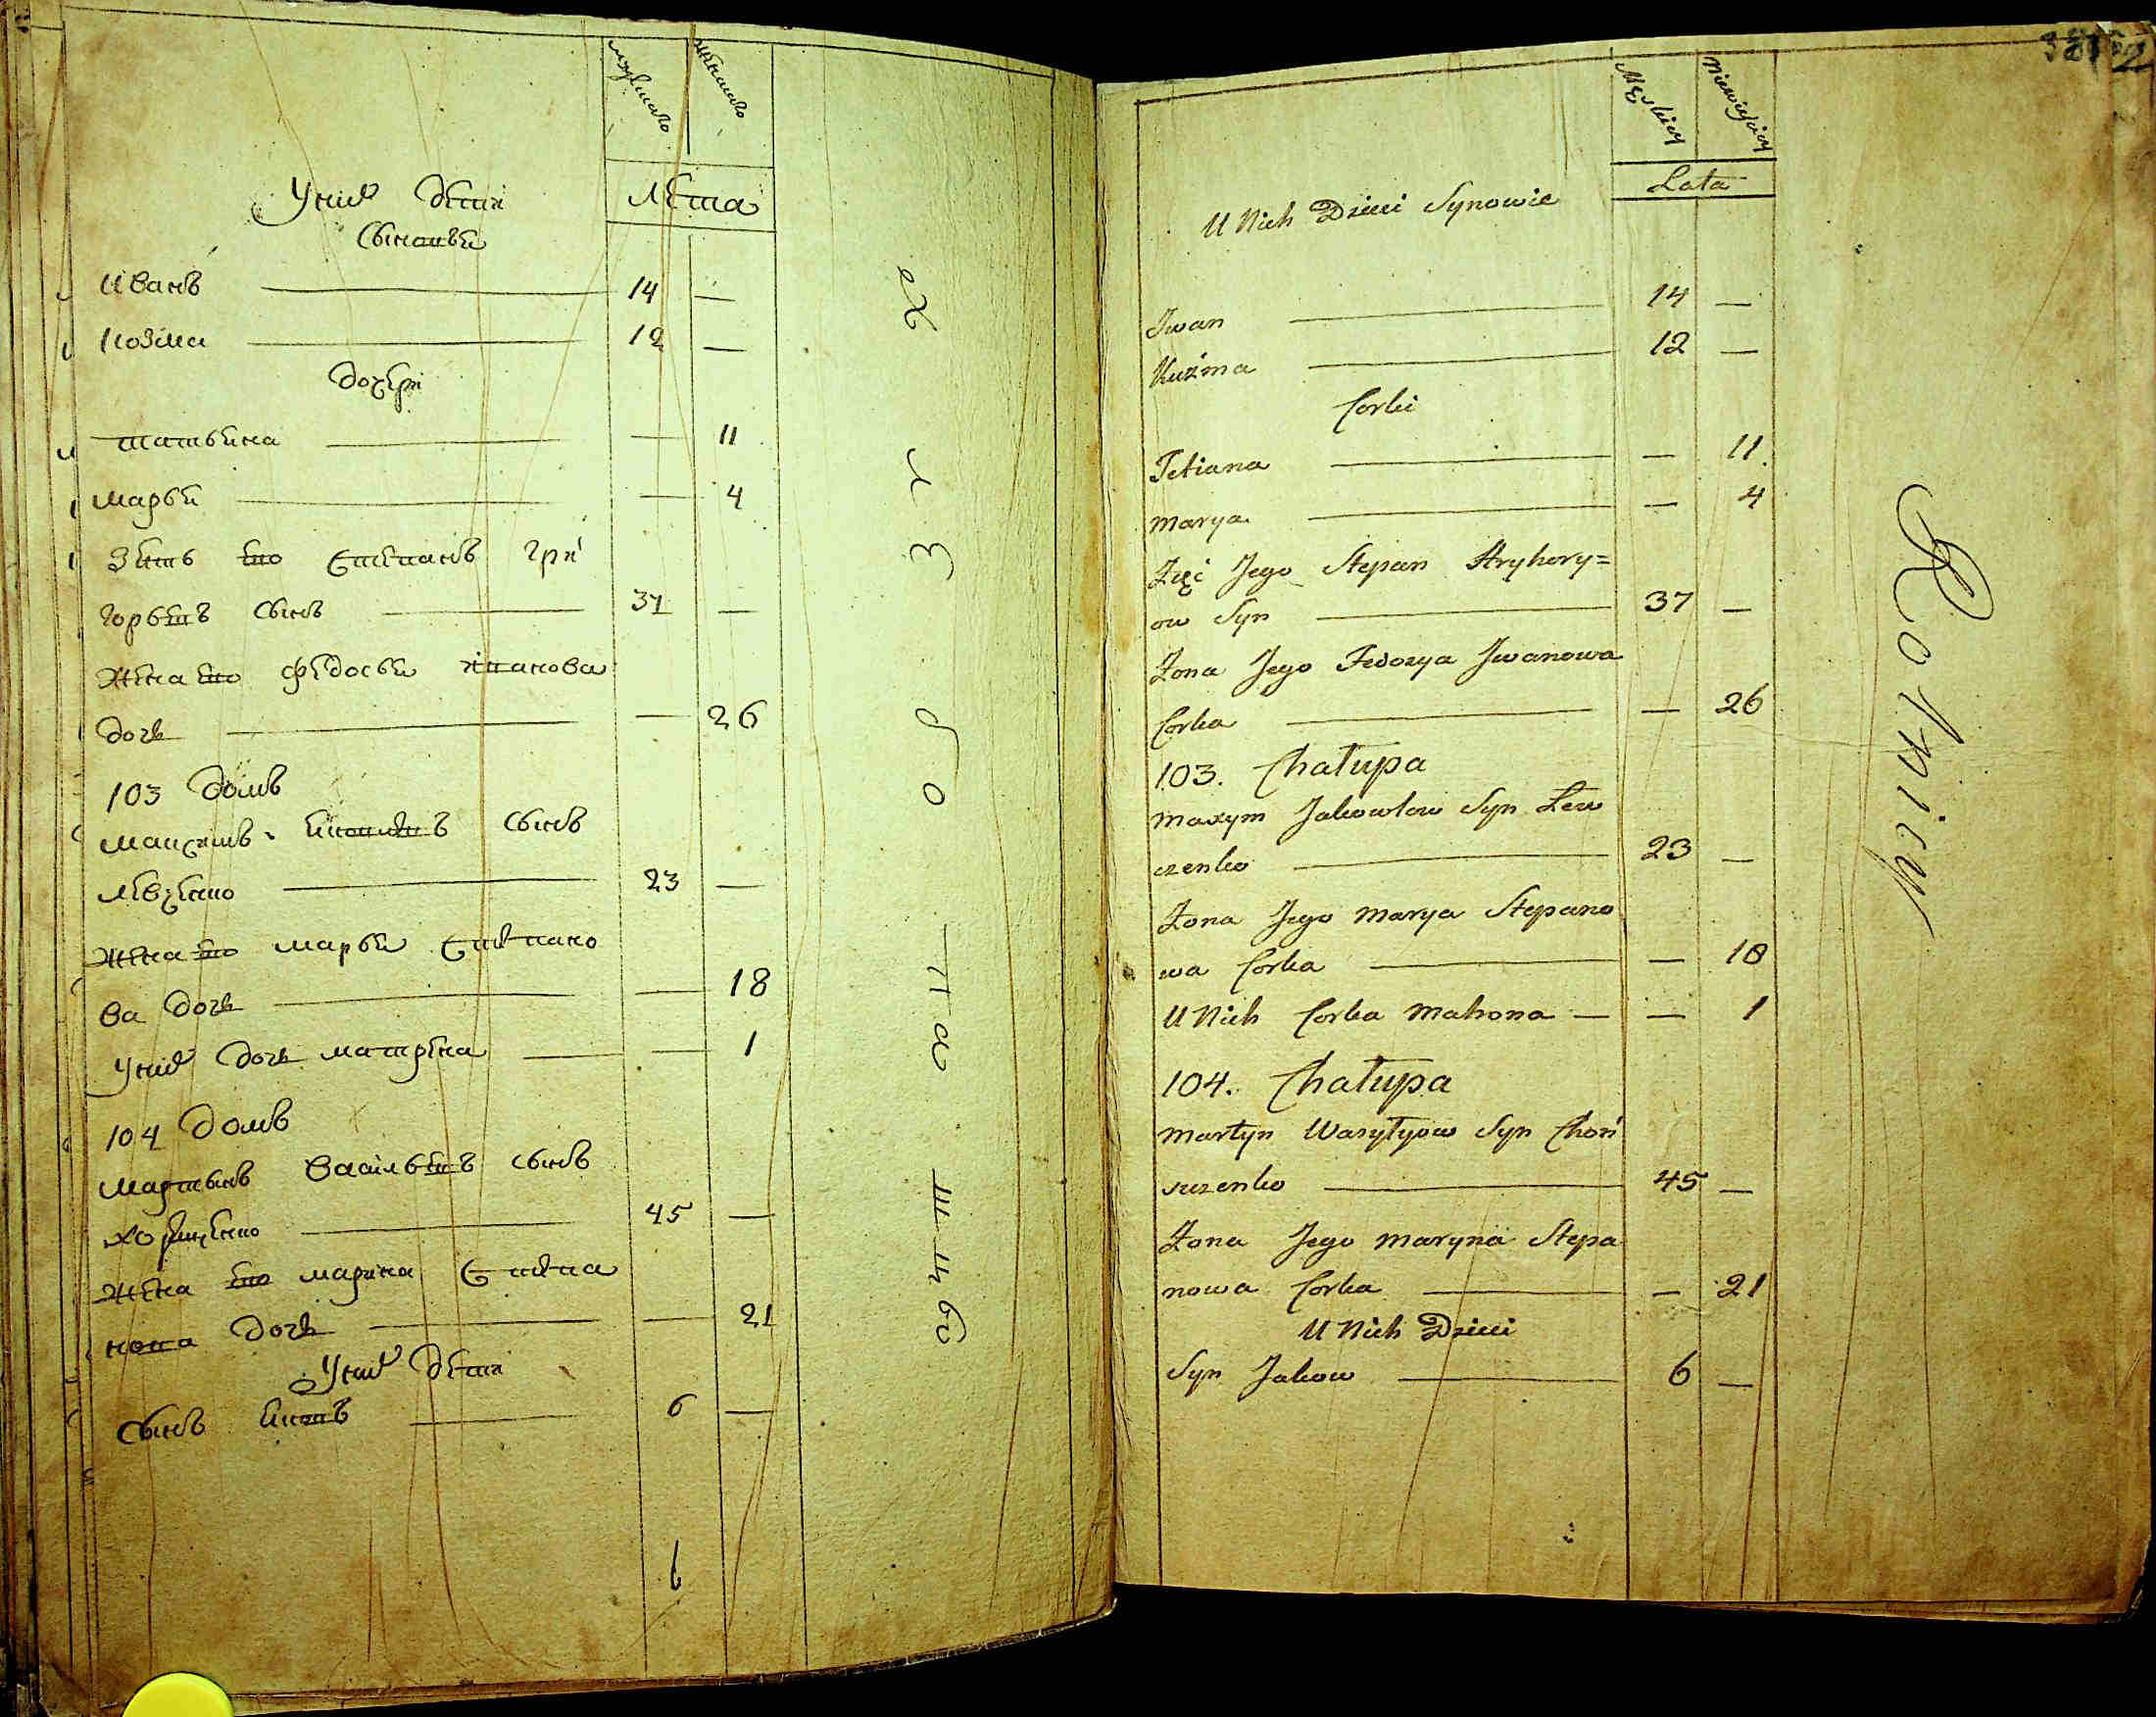 мужеска женска
У них дети лѣта
Сыновья
Иванъ 14 —
Козма 12 —
дочери
татьяна — 11
марья — 4
Зять его Степанъ Гри
горьевъ сынъ 37 —
жена его федосья иванова
дочь — 26
103 домъ
Максимъ яковлевъ сынъ
левченко 23 —
жена его марья Степано
ва дочь — 18
У них дочь матрена — 1
104 домъ
мартынъ васильевъ сынъ
45 —
жена его марина Степа
нова дочь — 21
У них дети
Сынъ яковъ 6 —
Męskiey Niewieściey
U Nich Dzieci Synowie Lata
Jwan 14 —
Kuźma 12 —
Corki
Tetiana — 11.
marya — 4
Zięć Jego Stepan Hryhory=
ow Syn 37 —
Żona Jego Fedosya Jwanowa
Corka — 26
103. Chałupa
maxym Jakowlow Syn Lew
czenko 23 —
Żona Jego marya Stepano
wa Corka — 18
U Nich Corka matrona — — 1
104. Chałupa
martyn Wasylyow Syn Choń
45 —
Żona Jego maryna Stepa
nowa Corka — 21
U Nich Dzieci
Syn Jakow 6 —
Rolnicy